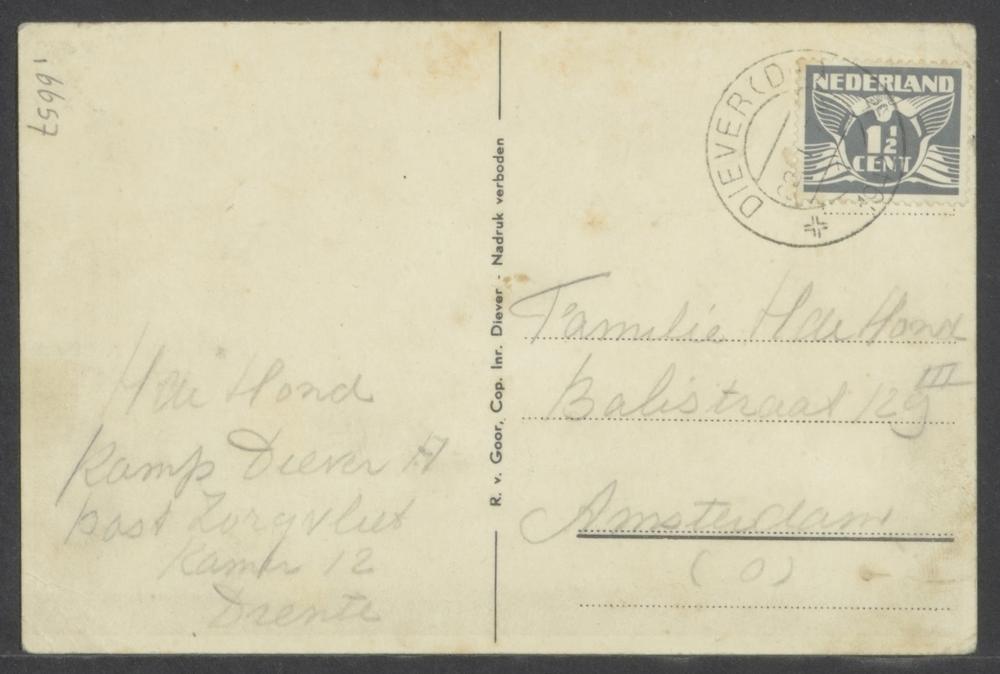 1.6657
NEDERLAND
1½
CENT
DIEVER (D
R. v. Goor, Cop. Inr. Diever - Nadruk verboden
Familie H de Hond
Balistraat 129 III
Amsterdam
(O)
H de Hond
Kamp Diever A
post Zorgvliet
Kamer 12
Drente